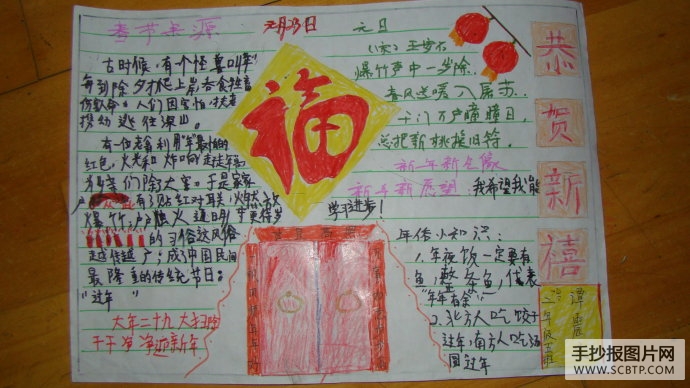 春节来源
古时候，有个怪兽叫"年"
每到除夕才爬上岸吞食牲畜
伤害人命。人们因害怕，扶老
携幼逃住深山。
有一位老翁利用"年"最怕的
红色，火光和炸响赶走年兽
为人们除了大害。于是家家
户户有贴红对联，火
爆竹；户户烛火通明守更待岁
的习俗这风俗
越传越广；成了中国民间
最隆重的传统节日：
"过年"
大年二十九大扫除
干干净净迎新年
元月23日
福
元旦
(宋)王安石
爆竹声中一岁除，
春风送暖入屠苏。
千门万户曈曈日，
总把新桃换旧符。
新一年新气象
新年新展望，我希望我能
学习进步！
年俗小知识：
1、年夜饭一定要有
鱼，整条鱼，代表
"年年有余"
2、北方人吃饺子
过年，南方人吃汤
圆过年
恭
贺
新
禧
手抄报图片网
WWW.SCBTP.COM